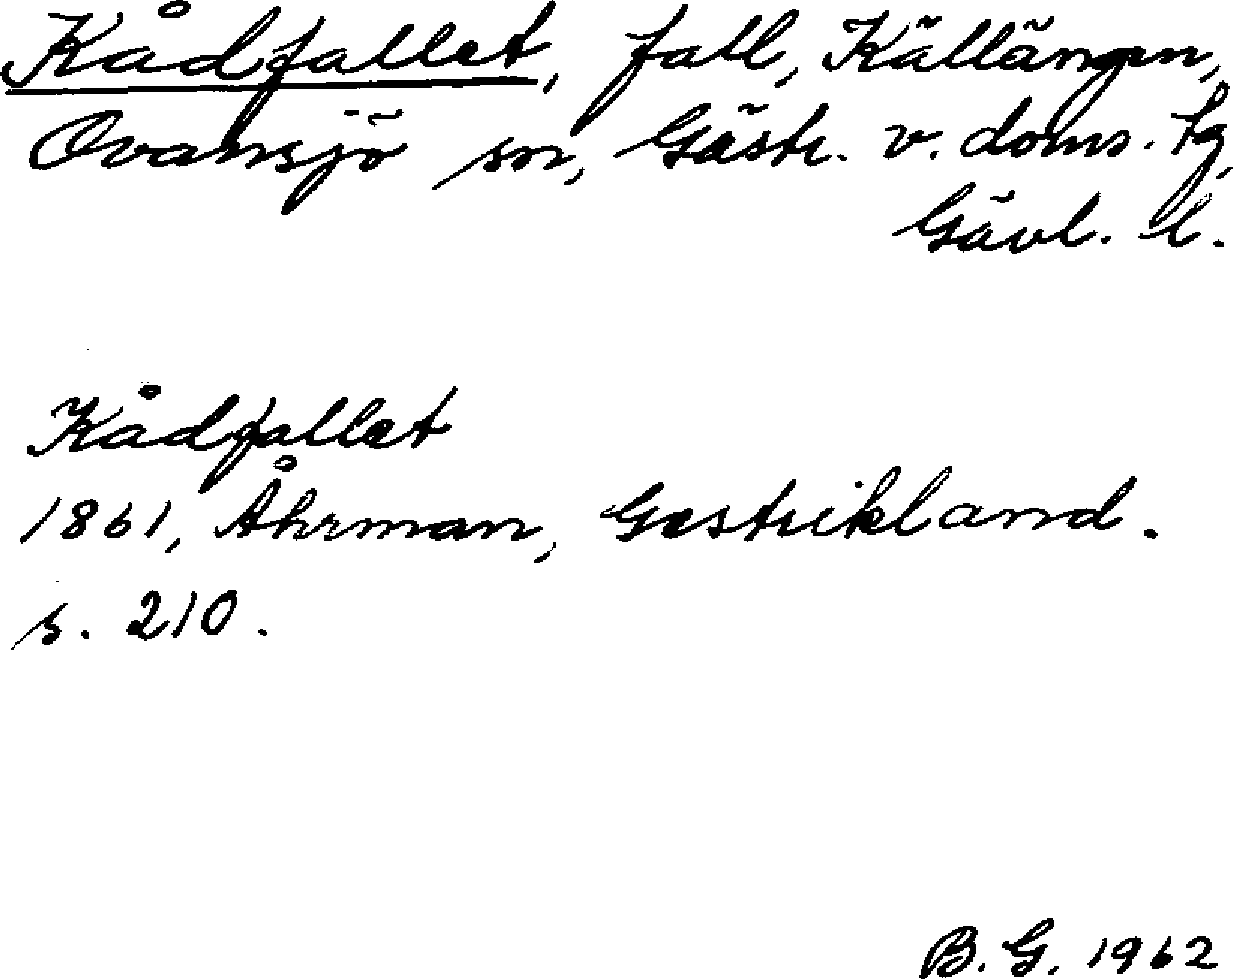 Kådfallet, fall, Källängen,
Ovansjö sn, Gästr. v. doms. tg,
Gävl. l.
Kådfallet
1861, Åhrman, Gestrikland.
s. 210.
B. G. 1962